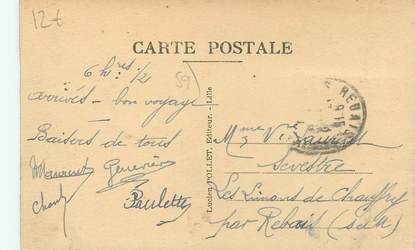 12€
CARTE POSTALE
6 hres 1/2
59
arrivés - bon voyage
Baisers de tous
Maurice Geneviève
Paulette
Lucien POLLET, Editeur. - Lille
REBAIS
Mme Vve Laurent
Sevestre
Les Limons de Chauffry
par Rebais (S et M)